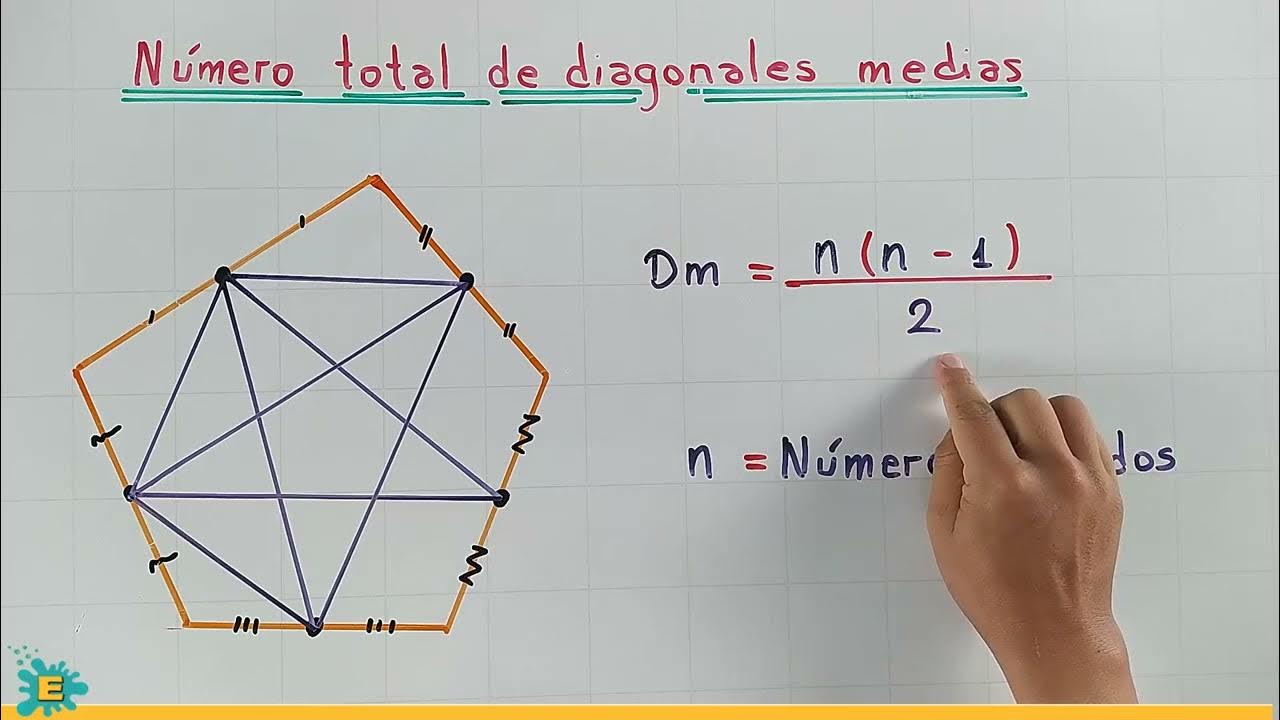 Número total de diagonales medias
Dm = n(n - 1)
2
n =
E